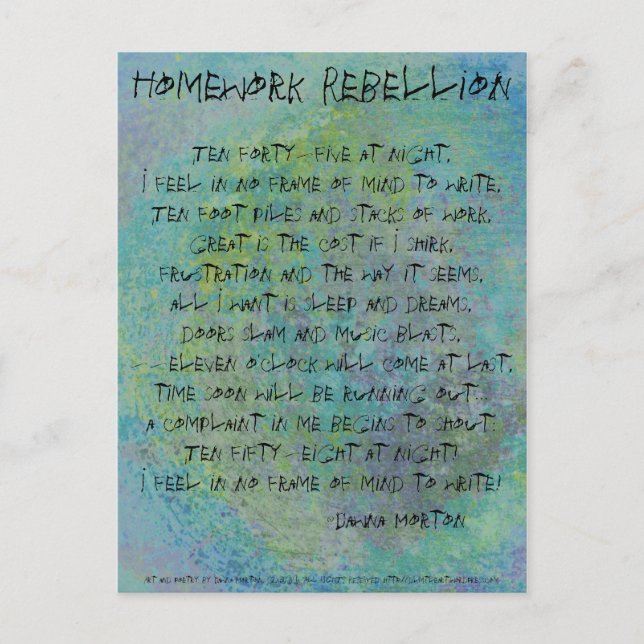 HOMEWORK REBELLION
TEN FORTY-FIVE AT NIGHT,
I FEEL IN NO FRAME OF MIND TO WRITE,
TEN FOOT PILES AND STACKS OF WORK,
GREAT IS THE COST IF I SHIRK,
FRUSTRATION AND THE WAY IT SEEMS,
ALL I WANT IS SLEEP AND DREAMS,
DOORS SLAM AND MUSIC BLASTS,
--ELEVEN O'CLOCK WILL COME AT LAST,
TIME SOON WILL BE RUNNING OUT...
A COMPLAINT IN ME BEGINS TO SHOUT:
TEN FIFTY-EIGHT AT NIGHT!
I FEEL IN NO FRAME OF MIND TO WRITE!
©DAWNA MORTON
ART AND POETRY BY DAWNA MORTON, ALL RIGHTS RESERVED